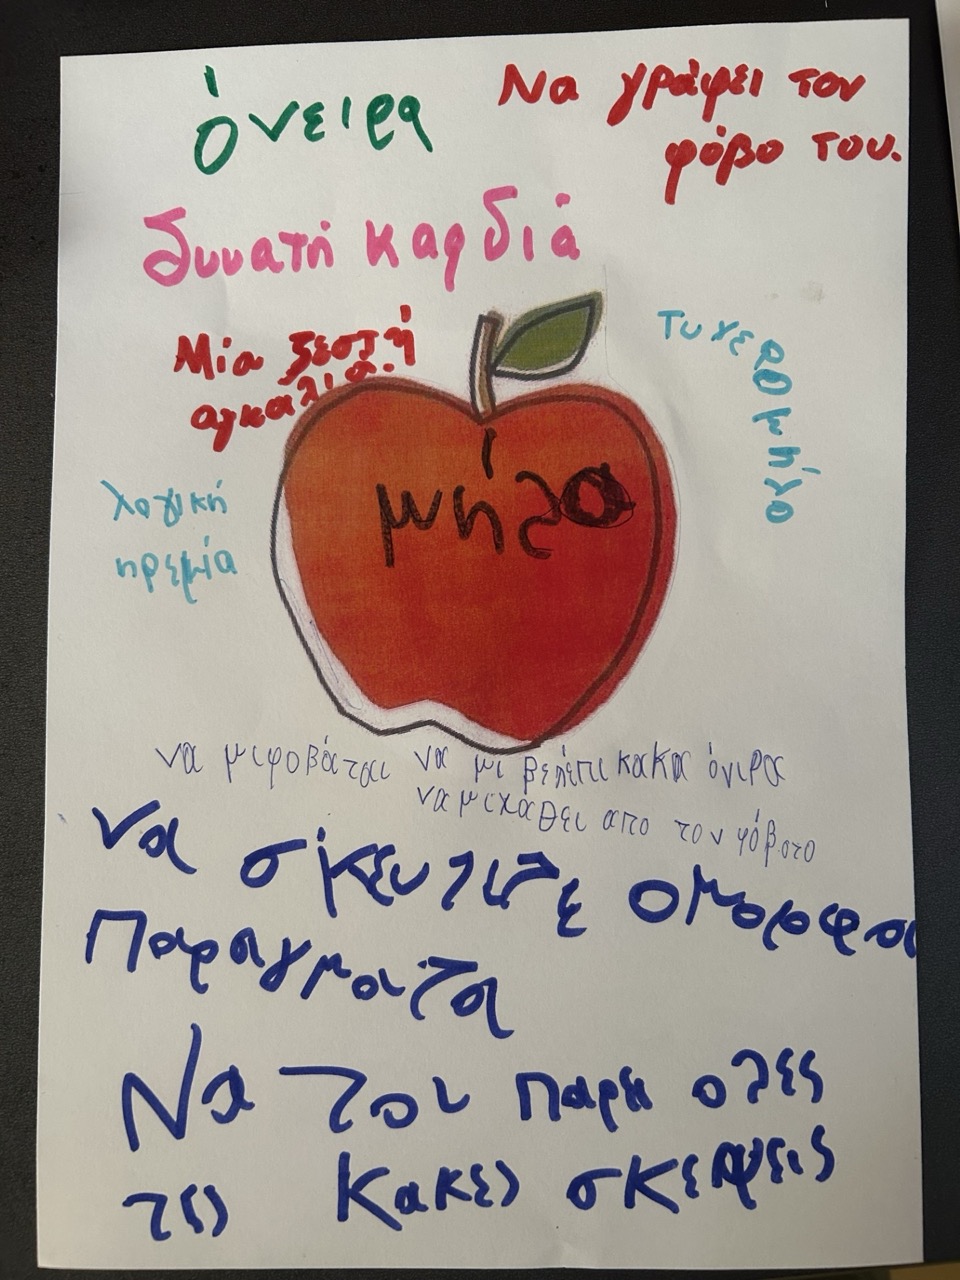 όνειρα
Να γράψει τον
φόβο του.
δυνατή καρδιά
Μία ζεστή
αγκαλιά.
τυχερό μήλο
μήλο
λογική
ηρεμία
να μιφοβάται να μι βελέπι κακα όνιρα
να μιχαθεί απο τον φόβοτο
να σκευτιτε ομορφα
Παραγματα
Να του παρει ολες
τες κακες σκεψεις